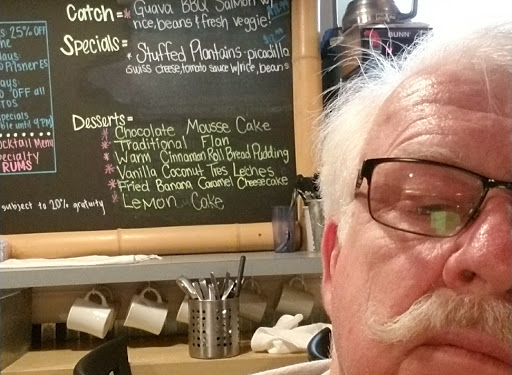 s 25% OFF
ne
days
D Pilsner ES
days
OFF all
TOS
specials
ble until 9PM
ocktail Menu
specialty
RUMS
subject to 20% gratuity
Catch = Guava BBQ Salmon w/
rice, beans & fresh veggie
Specials =
* Stuffed Plantains - picadillo
swiss cheese, tomato sauce w/rice, beans
Desserts =
* Chocolate Mousse Cake
* Traditional Flan
* Warm Cinnamon Roll Bread Pudding
* Vanilla Coconut Tres Leches
* Fried Banana Caramel Cheesecake
* Lemon Cake
BUNN